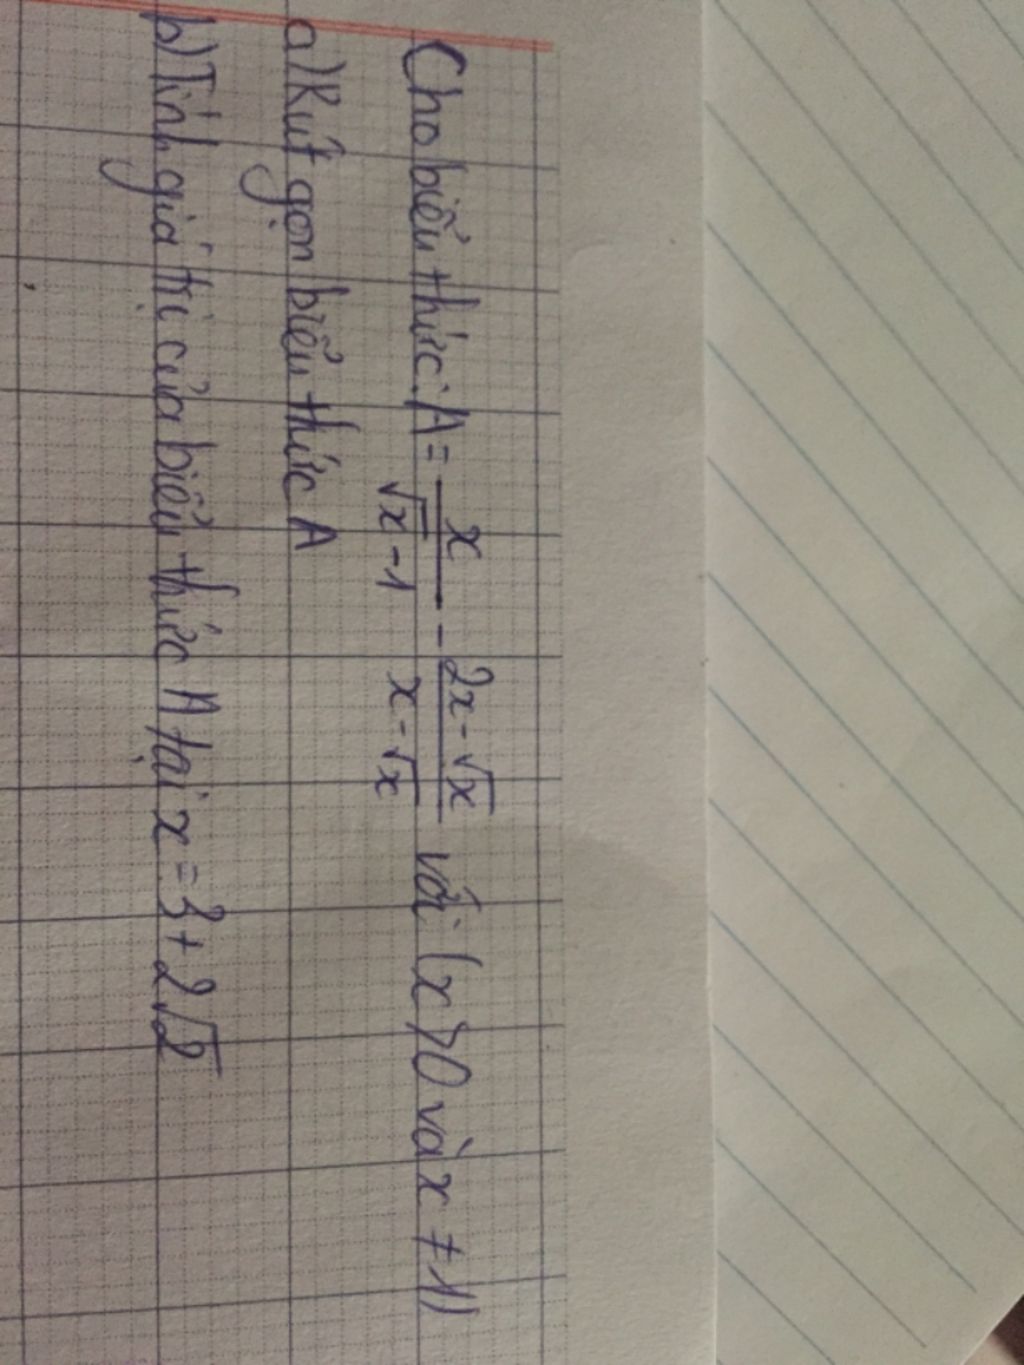 Cho biểu thức: A = \frac{x}{\sqrt{x}-1} - \frac{2x-\sqrt{x}}{x-\sqrt{x}} với (x > 0 và x ≠ 1)
a) Rút gọn biểu thức A
b) Tính giá trị của biểu thức A tại x = 3 + 2√2